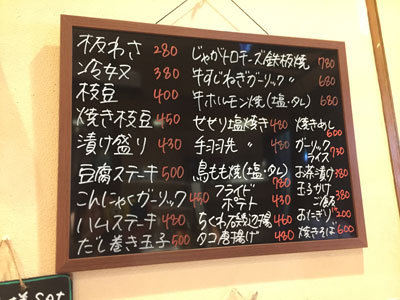 板わさ 280
冷奴 380
枝豆 400
焼き枝豆 450
漬け盛り 430
豆腐ステーキ 500
こんにゃくガーリック 450
ハムステーキ 480
だし巻き玉子 500
じゃがトロチーズ鉄板焼 780
牛すじねぎガーリック 〃 680
牛ホルモン焼(塩・タレ) 680
せせり塩焼き 480
手羽先 〃 480
鳥もも焼(塩・タレ) 780
フライドポテト 430
ちくわ磯辺揚 460
タコ唐揚げ 480
焼きめし 600
ガーリックライス 730
お茶漬け 380
玉子かけご飯 380
おにぎり 200
焼きそば 600
set